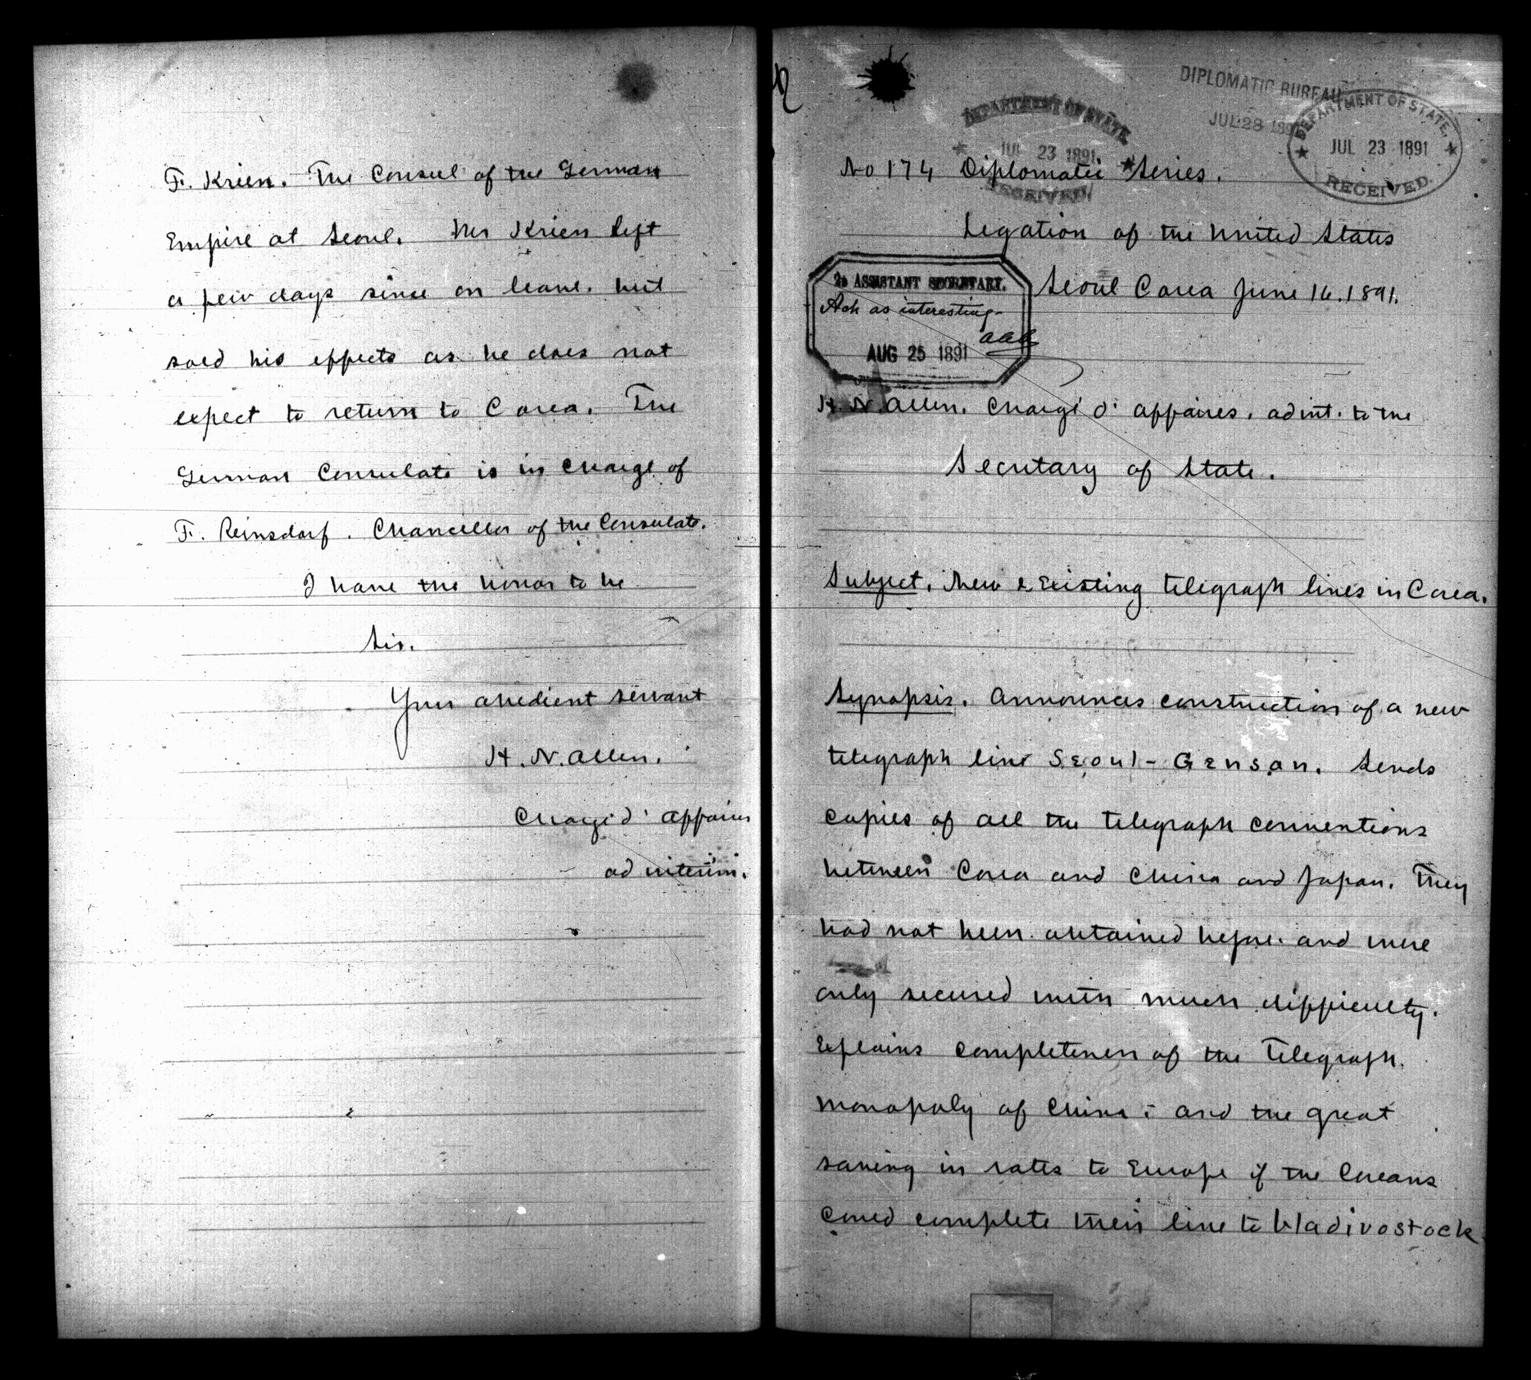 F. Krien. The Consul of the German
Empire at Seoul. Mr Krien left
a few days since on leave. but
sold his effects as he does not
expect to return to Corea. The
German Consulate is in charge of
F. Reinsdorf. Chancellor of the Consulate.
I have the honor to be
Sir.
Your obedient servant
H. N. Allen.
Chargé d' Affaires
ad interim.
DIPLOMATIC BUREAU
JUL 28 189
DEPARTMENT OF STATE,
JUL 23 1891
RECEIVED.
DEPARTMENT OF STATE,
JUL 23 1891
RECEIVED.
No 174 Diplomatic Series.
Legation of the United States
Seoul Corea June 16. 1891.
2D ASSISTANT SECRETARY.
Ack as interesting-
aaa
AUG 25 1891
H. N. Allen. Chargé d' Affaires. ad int. to the
Secretary of State.
Subject. New & Existing telegraph lines in Corea.
Synopsis. Announces construction of a new
telegraph line Seoul-Gensan. Sends
copies of all the telegraph conventions
between Corea and China and Japan. They
had not been obtained before. and were
only secured with much difficulty.
Explains completeness of the Telegraph
monopoly of China: and the great
saving in rates to Europe if the Coreans
could complete their line to Vladivostock